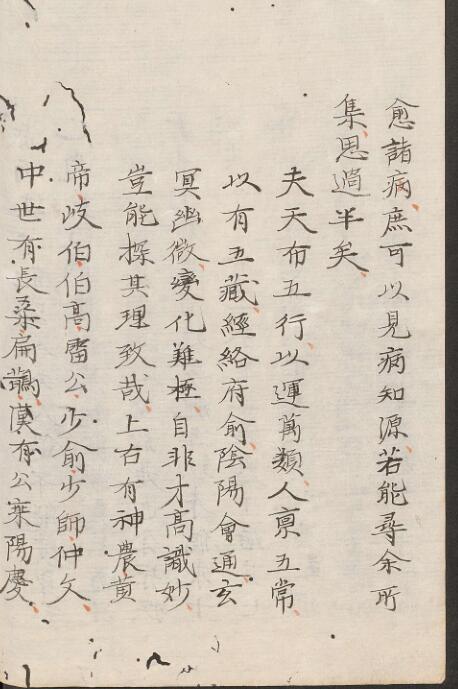 愈諸病庶可以見病知源若能尋余所
集思過半矣
夫天布五行以運萬類人禀五常
以有五藏經絡府俞陰陽會通玄
冥幽微變化難極自非才高識妙
豈能探其理致哉上右有神農黄
帝岐伯伯高雷公少俞少師仲文
中世有長桑扁鵲漢有公乗陽慶